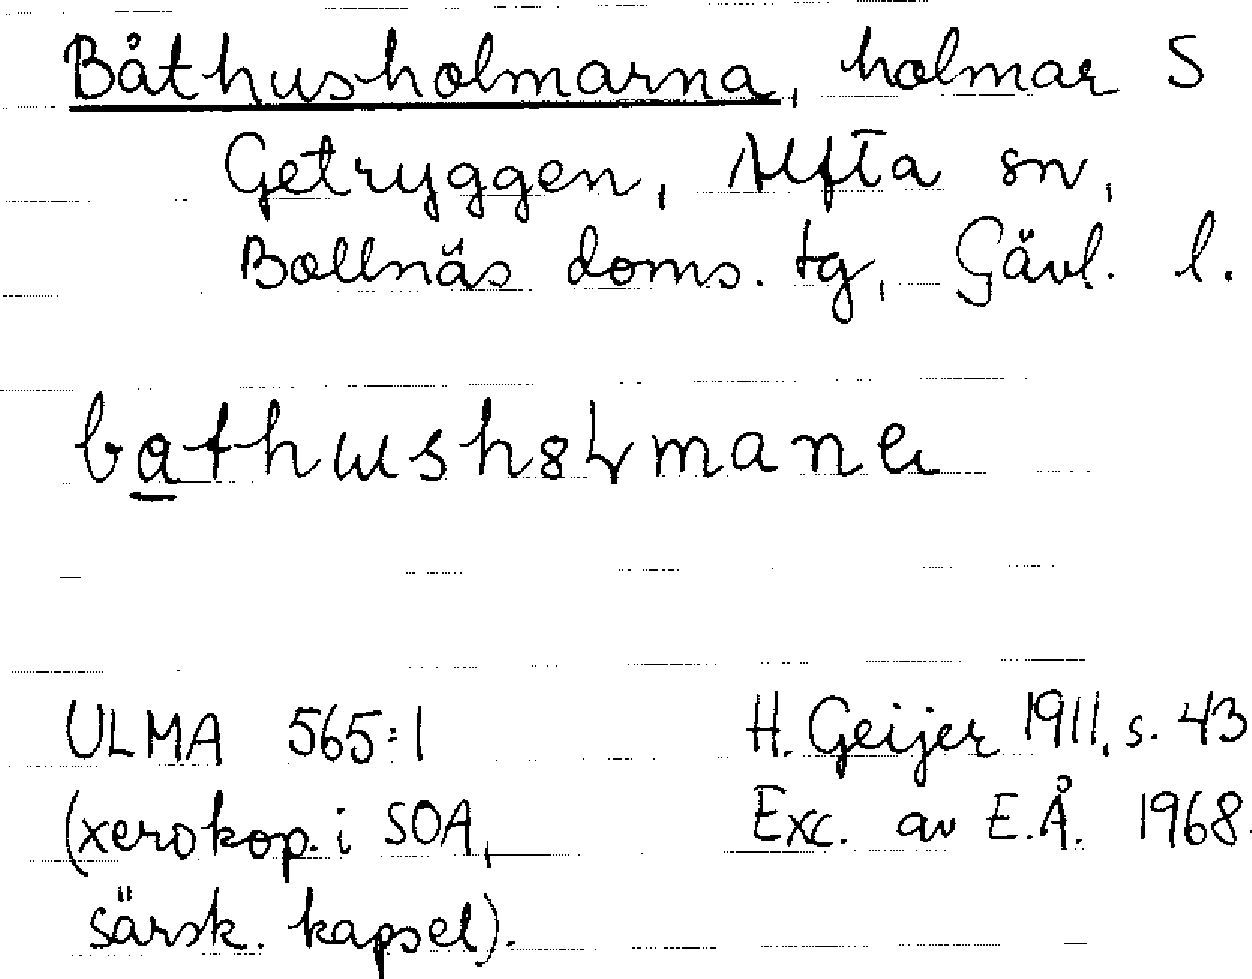 Båthusholmarna, holmar S
Getryggen, Alfta sn,
Bollnäs doms. tg, Gävl. l.
ULMA 565:1
(xerokop. i SOA,
särsk. kapsel).
H. Geijer 1911, s. 43
Exc. av E.Å. 1968.